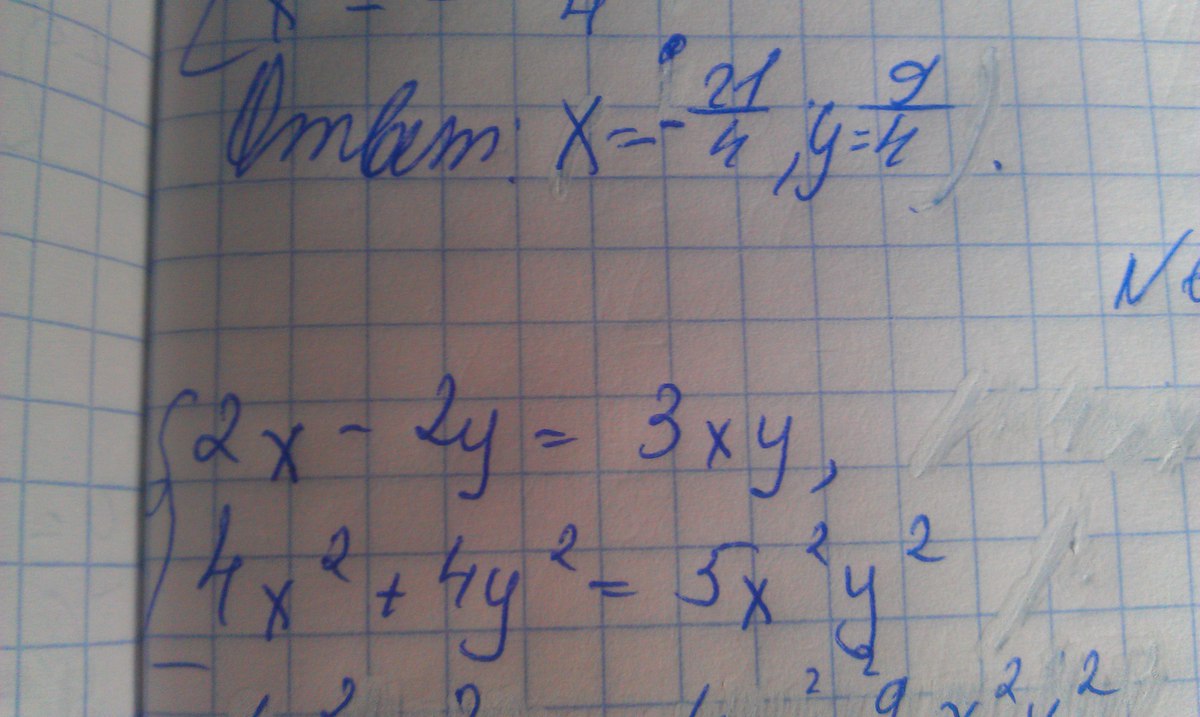 Ответ: x = -21/4, y = 9/4).
2x - 2y = 3xy,
4x² + 4y² = 5x²y²